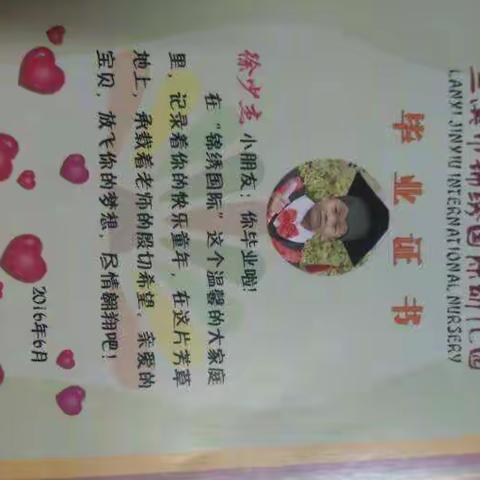 兰溪市锦绣国际幼儿园
LANXI JINXIU INTERNATIONAL NURSERY
毕业证书
徐少杰小朋友：你毕业啦！
在“锦绣国际”这个温馨的大家庭
里，记录着你的快乐童年，在这片芳草
地上，承载着老师的殷切希望，亲爱的
宝贝，放飞你的梦想，尽情翱翔吧！
2016年6月